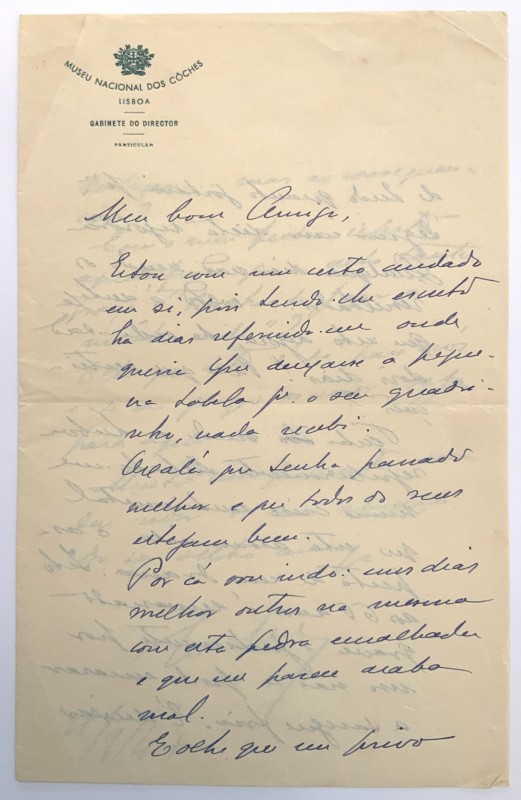 MUSEU NACIONAL DOS CÔCHES
LISBOA
GABINETE DO DIRECTOR
PARTICULAR
Meu bom Amigo,
Estou com um certo cuidado
em si, pois tendo-lhe escrito
ha dias referindo-me onde
queria que deixasse a peque-
na tabela pr. o seu quadri-
nho, nada recebi.
Oxalá que tenha passado
melhor e que todos os seus
estejam bem.
Por cá vou indo: uns dias
melhor outros na mesma
com esta pedra encalhada
e que me parece acaba
mal.
E olhe que me privo